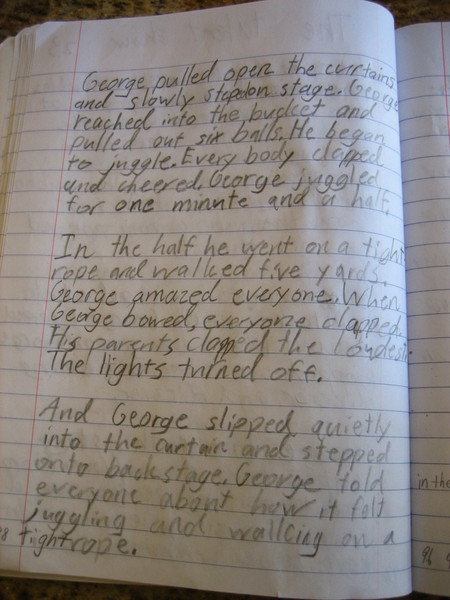 George pulled open the currtains
and slowly stepdon stage. George
reached into the bucket and
pulled out six balls. He began
to juggle. Every body clapped
and cheered. George juggled
for one minute and a half.
In the half he went on a tight
rope and walked five yards.
George amazed everyone. When
George bowed, everyone clapped.
His parents clapped the loudest.
The lights turned off.
And George slipped quietly
into the curtain and stepped
onto backstage. George told
everyone about how it felt
juggling and wallcing on a
tightrope.
in the